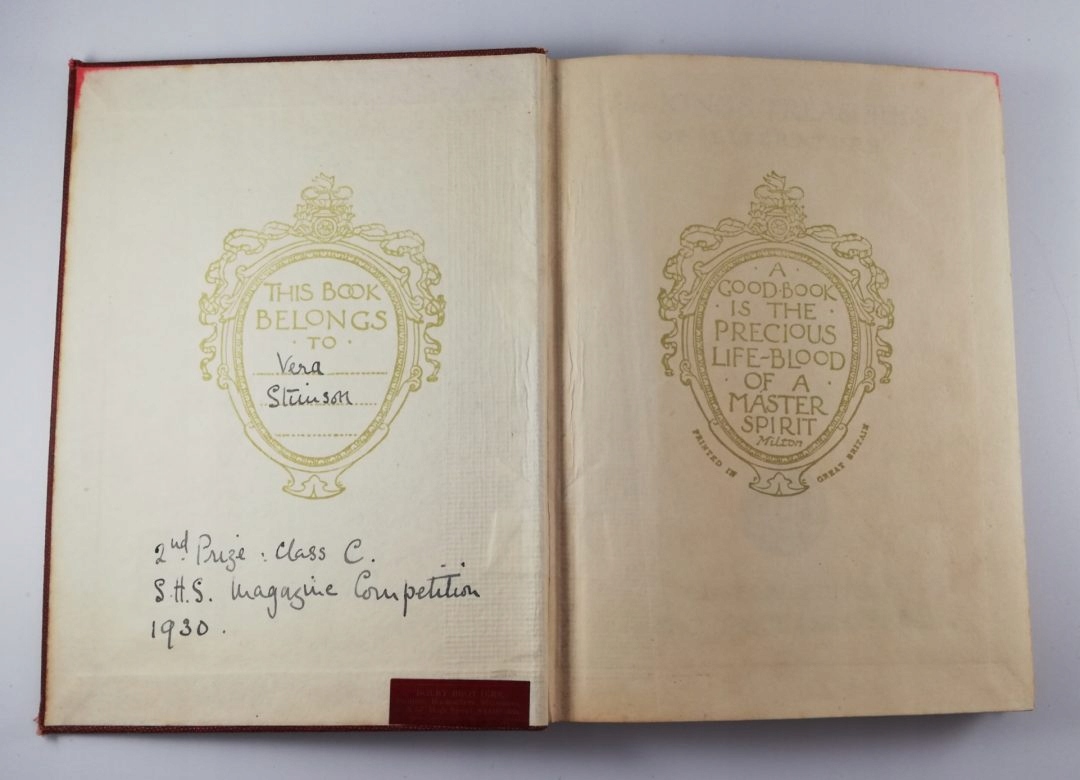 THIS BOOK
BELONGS
· TO ·
Vera
Stimson
2nd Prize : Class C.
S.H.S. Magazine Competition
1930.
· A ·
GOOD·BOOK
· IS THE ·
PRECIOUS
LIFE-BLOOD
· OF A ·
MASTER
SPIRIT
Milton
PRINTED IN GREAT BRITAIN